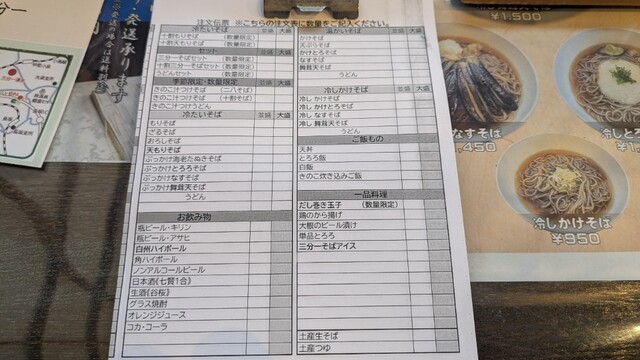 注文伝票 ※こちらの注文表に数量をご記入ください。
冷たいそば 並盛 大盛
十割もりそば （数量限定）
十割天もりそば （数量限定）
セット 並盛 大盛
三分一そばセット （数量限定）
十割三分一そばセット（数量限定）
うどんセット （数量限定）
季節限定・数量限定 並盛 大盛
きのこ汁つけそば （二八そば）
きのこ汁つけそば （十割そば）
きのこ汁つけうどん
冷たいそば 並盛 大盛
もりそば
ざるそば
おろしそば
天もりそば
ぶっかけ海老たぬきそば
ぶっかけとろろそば
ぶっかけなすそば
ぶっかけ舞茸天そば
うどん
お飲み物
瓶ビール・キリン
瓶ビール・アサヒ
白州ハイボール
角ハイボール
ノンアルコールビール
日本酒《七賢1合》
生酒《谷桜》
グラス焼酎
オレンジジュース
コカ・コーラ
温かいそば 並盛 大盛
かけそば
天ぷらそば
かけとろろそば
なすそば
舞茸天そば
うどん
冷しかけそば 並盛 大盛
冷し かけそば
冷し かけとろろそば
冷し なすそば
冷し 舞茸天そば
うどん
ご飯もの
天丼
とろろ飯
白飯
きのこ炊き込みご飯
一品料理
だし巻き玉子 （数量限定）
鶏のから揚げ
大根のビール漬け
単品とろろ
三分一そばアイス
土産生そば
土産つゆ
発送承ります
¥1,500
なすそば
,450
冷しと
¥1,
冷しかけそば
¥950